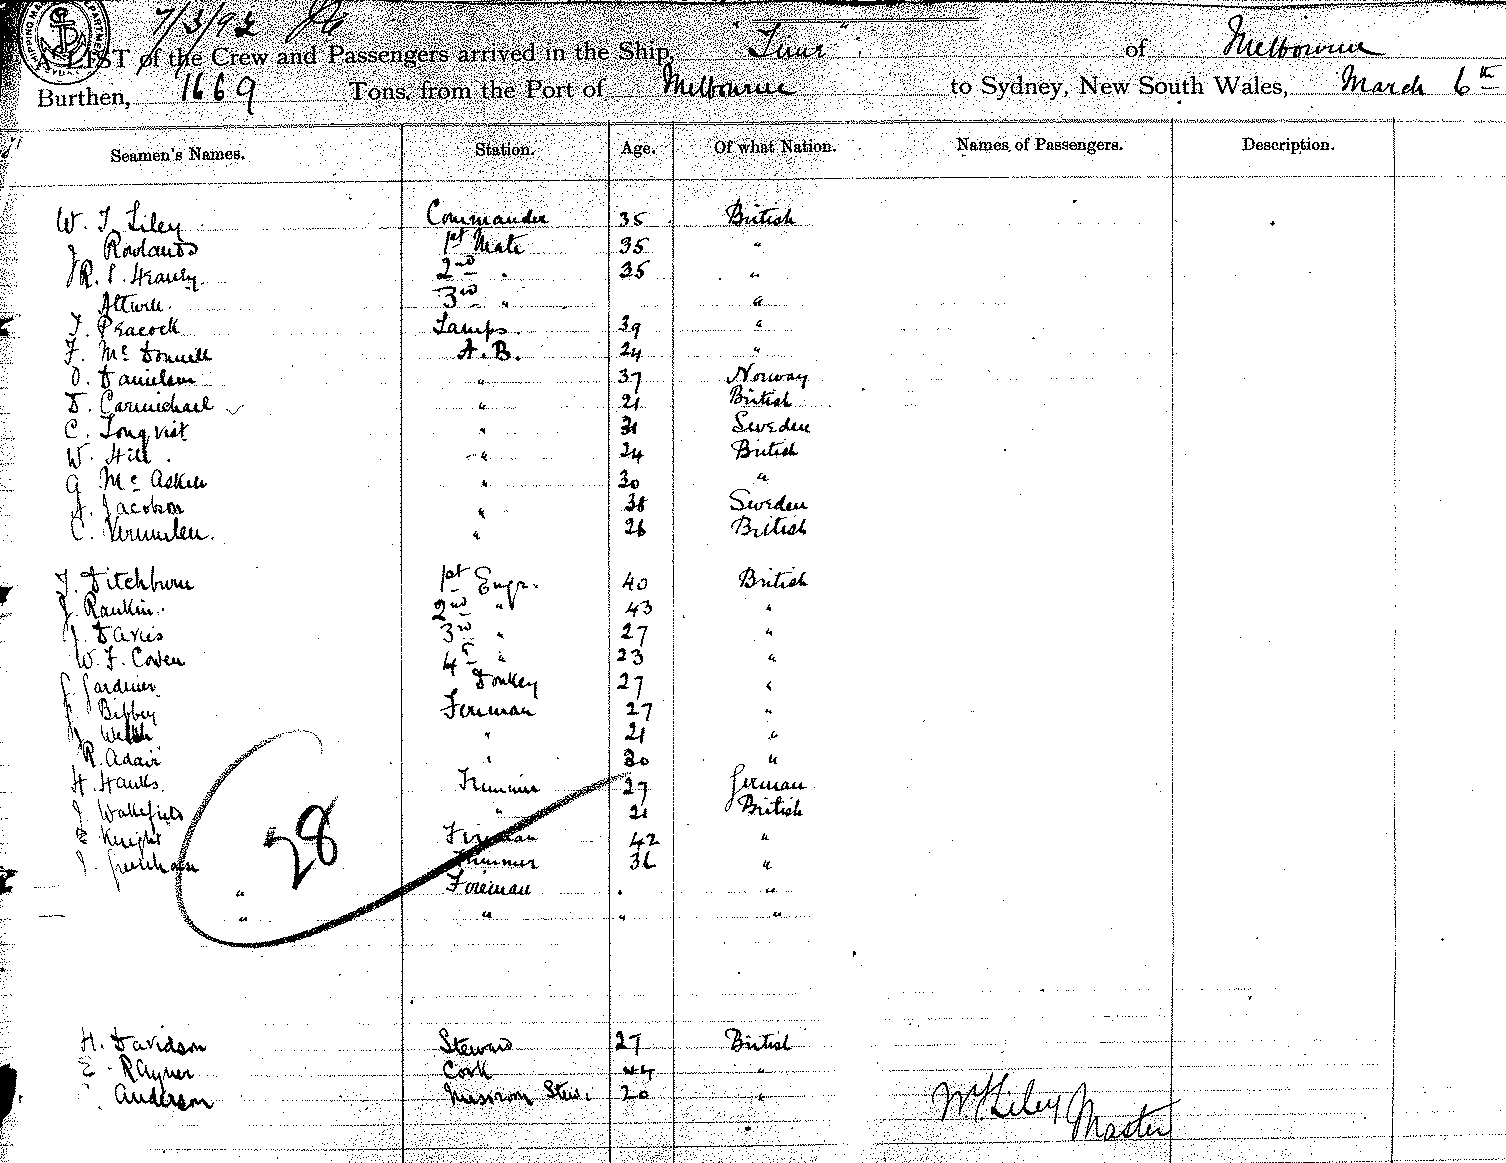 7/3/92
A LIST of the Crew and Passengers arrived in the Ship, of Melbourne
Burthen, 1669 Tons, from the Port of Melbourne to Sydney, New South Wales, March 6th
Seamen's Names. Station. Age. Of what Nation. Names of Passengers. Description.
W. T. Liley Commander 35 British
J Rowlands 1st Mate 35 "
R. 2nd " 35 "
3rd " "
T. Peacock Lamps 39 "
F. Mc Donnell A.B. 24 "
O. Danielson " 37 Norway
D. Carmichael " 21 British
C. Lonqvist " 31 Sweden
W. Hill " 24 British
A Mc Askell " 30 "
J. Jacobson " 38 Sweden
C. Vermulen " 26 British
T. Ditchburn 1st Engr. 40 British
J. Rankin 2nd " 43 "
J. Davis 3rd " 27 "
W. F. Coven 4th " 23 "
J. Gardiner Donkey 27 "
J. Bibbey Fireman 27 "
J Welsh " 21 "
R. Adair " 30 "
H. Hanks Trimmer 27 German
J Wakefield " 21 British
Knight Fireman 42 "
28
J. Greenham Trimmer 36 "
" Fireman . "
" " " "
H. Davidson Steward 27 British
E. Rayner Cook 44 "
Anderson Messroom Stew. 20 "
W T Liley Master